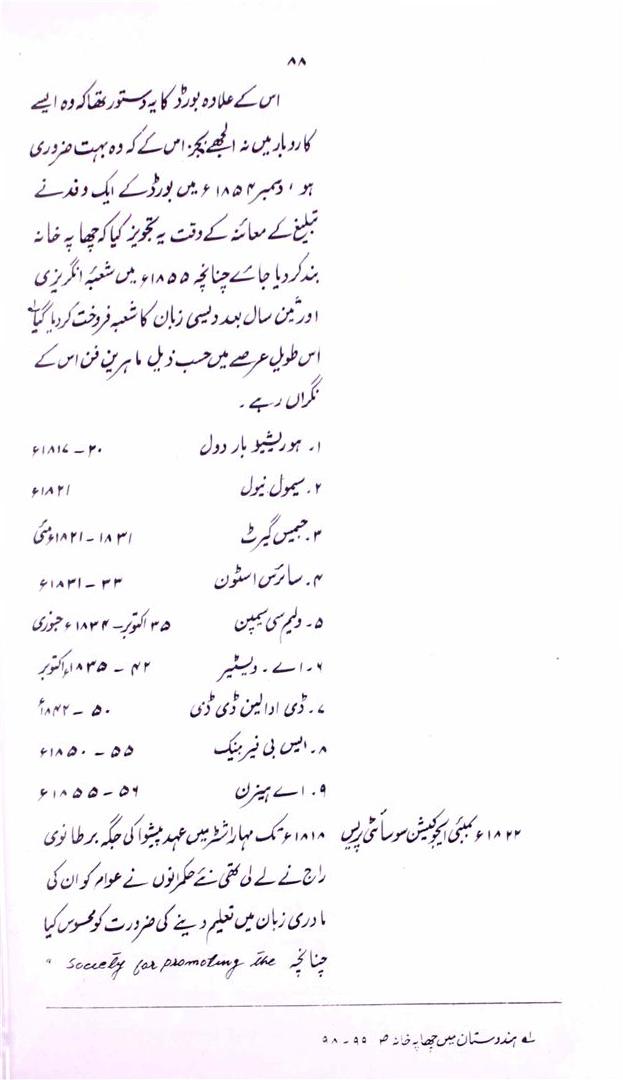 ۸۸
اس کے علاوہ بورڈ کا یہ دستور تھا کہ وہ ایسے
کاروبار میں نہ الجھے بجز اس کے کہ وہ بہت ضروری
ہو ، دسمبر ۱۸۵۴ء میں بورڈ کے ایک وفد نے
تبلیغ کے معائنہ کے وقت یہ تجویز کیا کہ چھاپہ خانہ
بند کردیا جائے چنانچہ ۱۸۵۵ء میں شعبۂ انگریزی
اور تین سال بعد دیسی زبان کا شعبہ فروخت کردیا گیا لہ
اس طویل عرصے میں حسب ذیل ماہرین فن اس کے
نگراں رہے ۔
۱۔ ہوریشیو بارڈول ۲۰ – ۱۸۱۷ء
۲. سیمول نیول ۱۸۲۱ء
۳. جیمس گیرٹ ۱۸۳۱ – ۱۸۲۱ء مئی
۴. سائرس اسٹون ۳۳ – ۱۸۳۱ء
۵۔ ولیم سی سیمپن ۳۵ اکتوبر – ۱۸۳۴ء جنوری
۶۔ اے ۔ ویسٹیر ۴۲ – ۱۸۳۵ء اکتوبر
۷. ڈی او ایلن ڈی ڈی ۵۰ – ۱۸۴۲ء
۸. ایس بی فیربینک ۵۵ – ۱۸۵۰ء
۹. اے ہیزن ۵۶ – ۱۸۵۵ء
۱۸۲۲ء بمبئی ایجوکیشن سوسائٹی پریس ۱۸۱۸ء تک مہاراشٹر میں عہد پیشوا کی جگہ برطانوی
راج نے لے لی تھی نئے حکمرانوں نے عوام کو ان کی
مادری زبان میں تعلیم دینے کی ضرورت کو محسوس کیا
چنانچہ " Society for promoting the
لہ ہندوستان میں چھاپہ خانہ ص ۹۹ - ۹۸